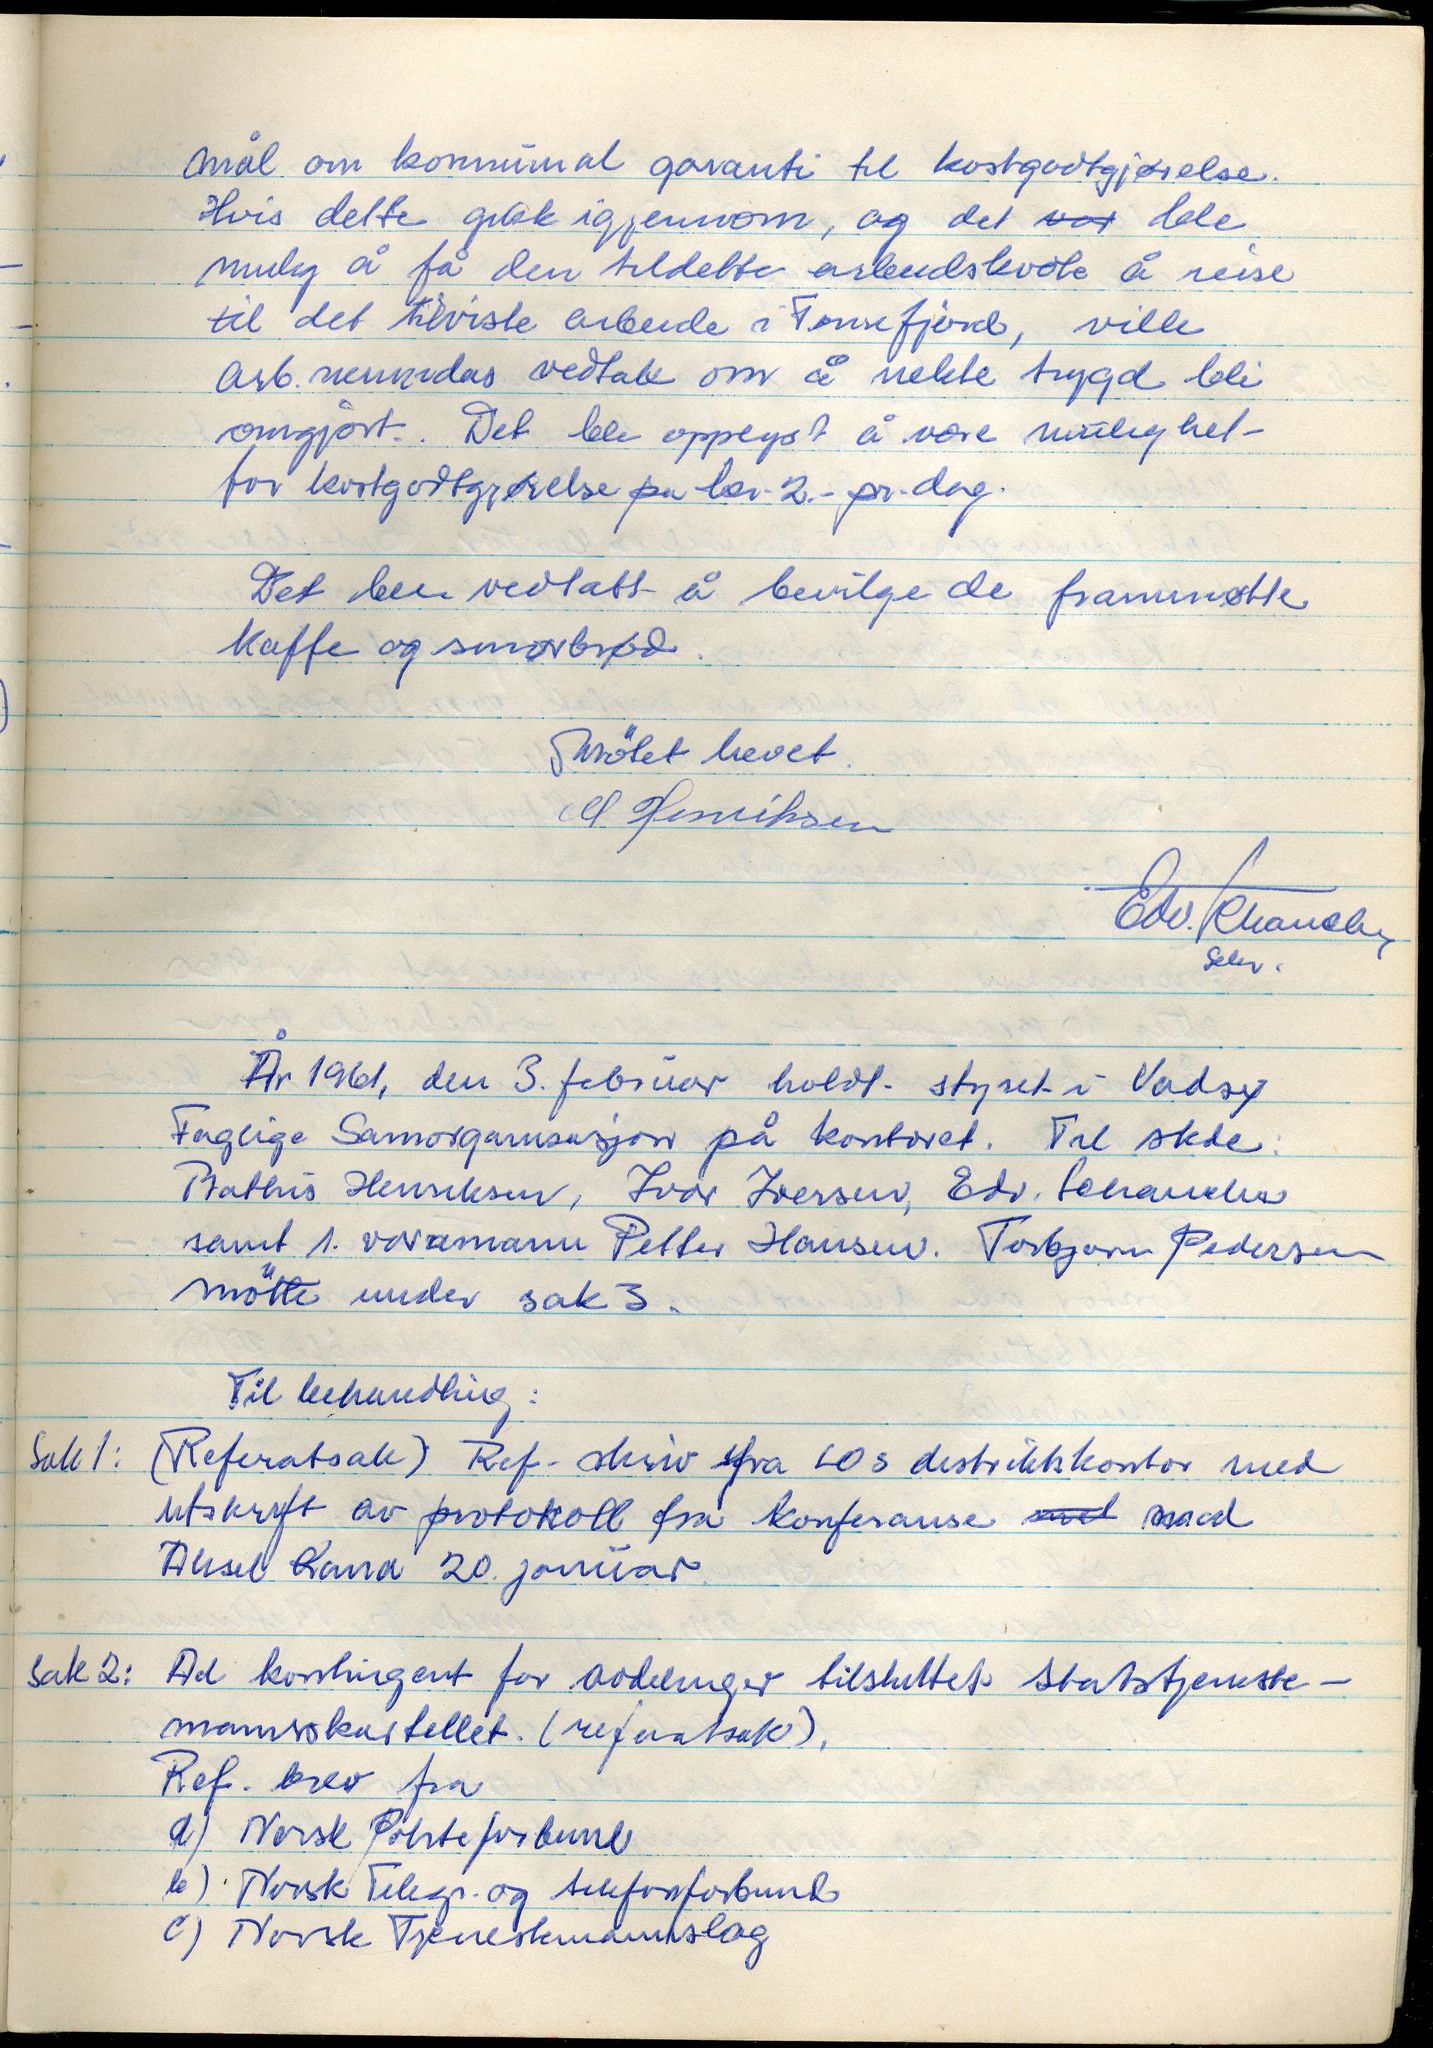 mål om kommunal garanti til kostgodtgjørelse.
Hvis dette gikk igjennom, og det var ble
mulig å få den tildelte arbeidskvote å reise
til det tilviste arbeide i fjord, ville
arb.nemndas vedtak om å nekte trygd bli
omgjort. Det ble opplyst å være mulighet
for kostgodtgjørelse på kr. 2.- pr. dag.
Det ble vedtatt å bevilge de frammøtte
kaffe og smørbrød.
Møtet hevet.
M Henriksen
Edv.
sekr.
År 1961, den 3. februar holdt styret i Vadsø
Faglige Samorganisasjon på kontoret. Til stede:
Henriksen, Ivar Iversen, Edv.
samt 1. varamann Petter Hansen. Torbjørn Pedersen
møtte under sak 3.
Til behandling:
Sak 1: (Referatsak) Ref. skriv fra LOs distriktskontor med
utskrift av protokoll fra konferanse med
Aksel 20. januar.
Sak 2: Ad kontingent for avdelinger tilsluttet Statstjeneste-
mannskartellet. (referatsak).
Ref. brev fra
a) Norsk Postforbund
b) Norsk Telegr. og telefonforbund
c) Norsk Tjenestemannslag